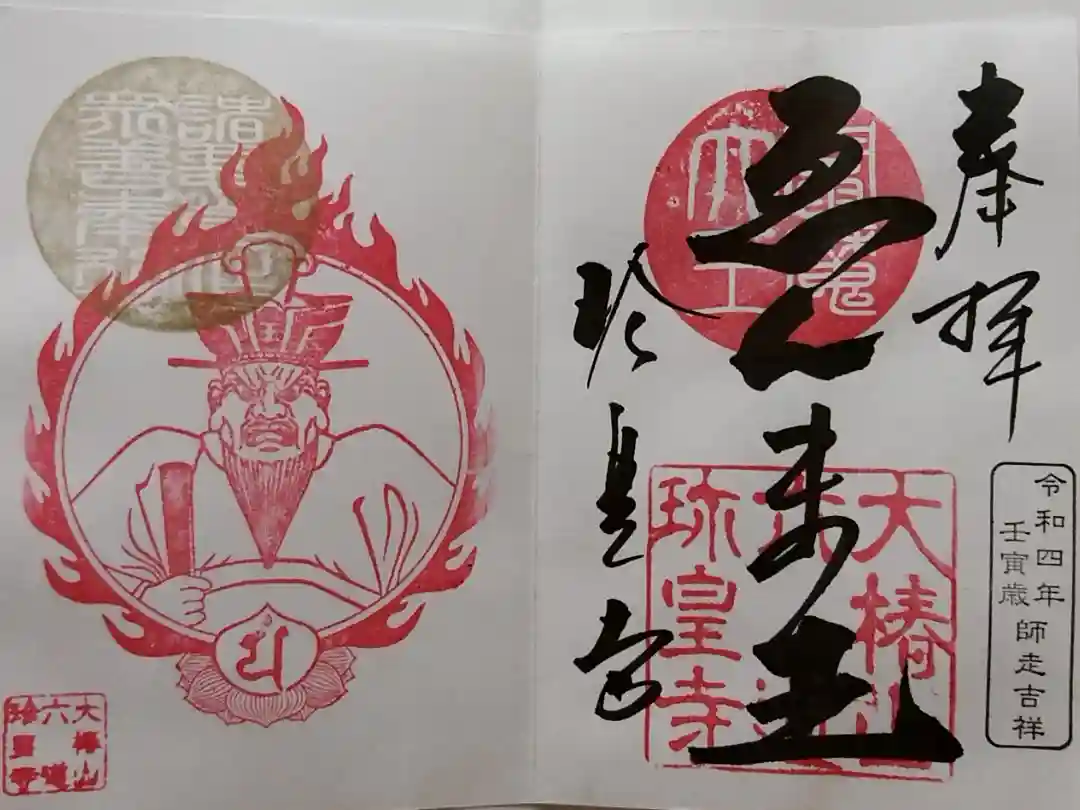 奉拝
令和四年
壬寅歳
師走吉祥
閻魔
大王
ゑんま王
大椿山
六道
珎皇寺
珍皇寺
諸悪莫作
衆善奉行
王
大椿山
六道
珍皇寺